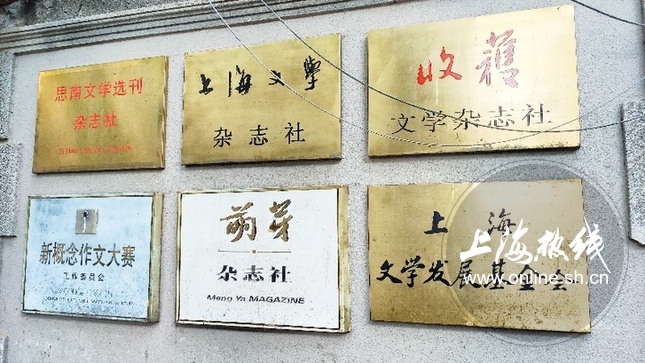 思南文学选刊
杂志社
上海文学
杂志社
收穫
文学杂志社
新概念作文大赛
工作委员会
萌芽
杂志社
Meng Ya MAGAZINE
上海
文学发展基金会
上海热线
www.online.sh.cn